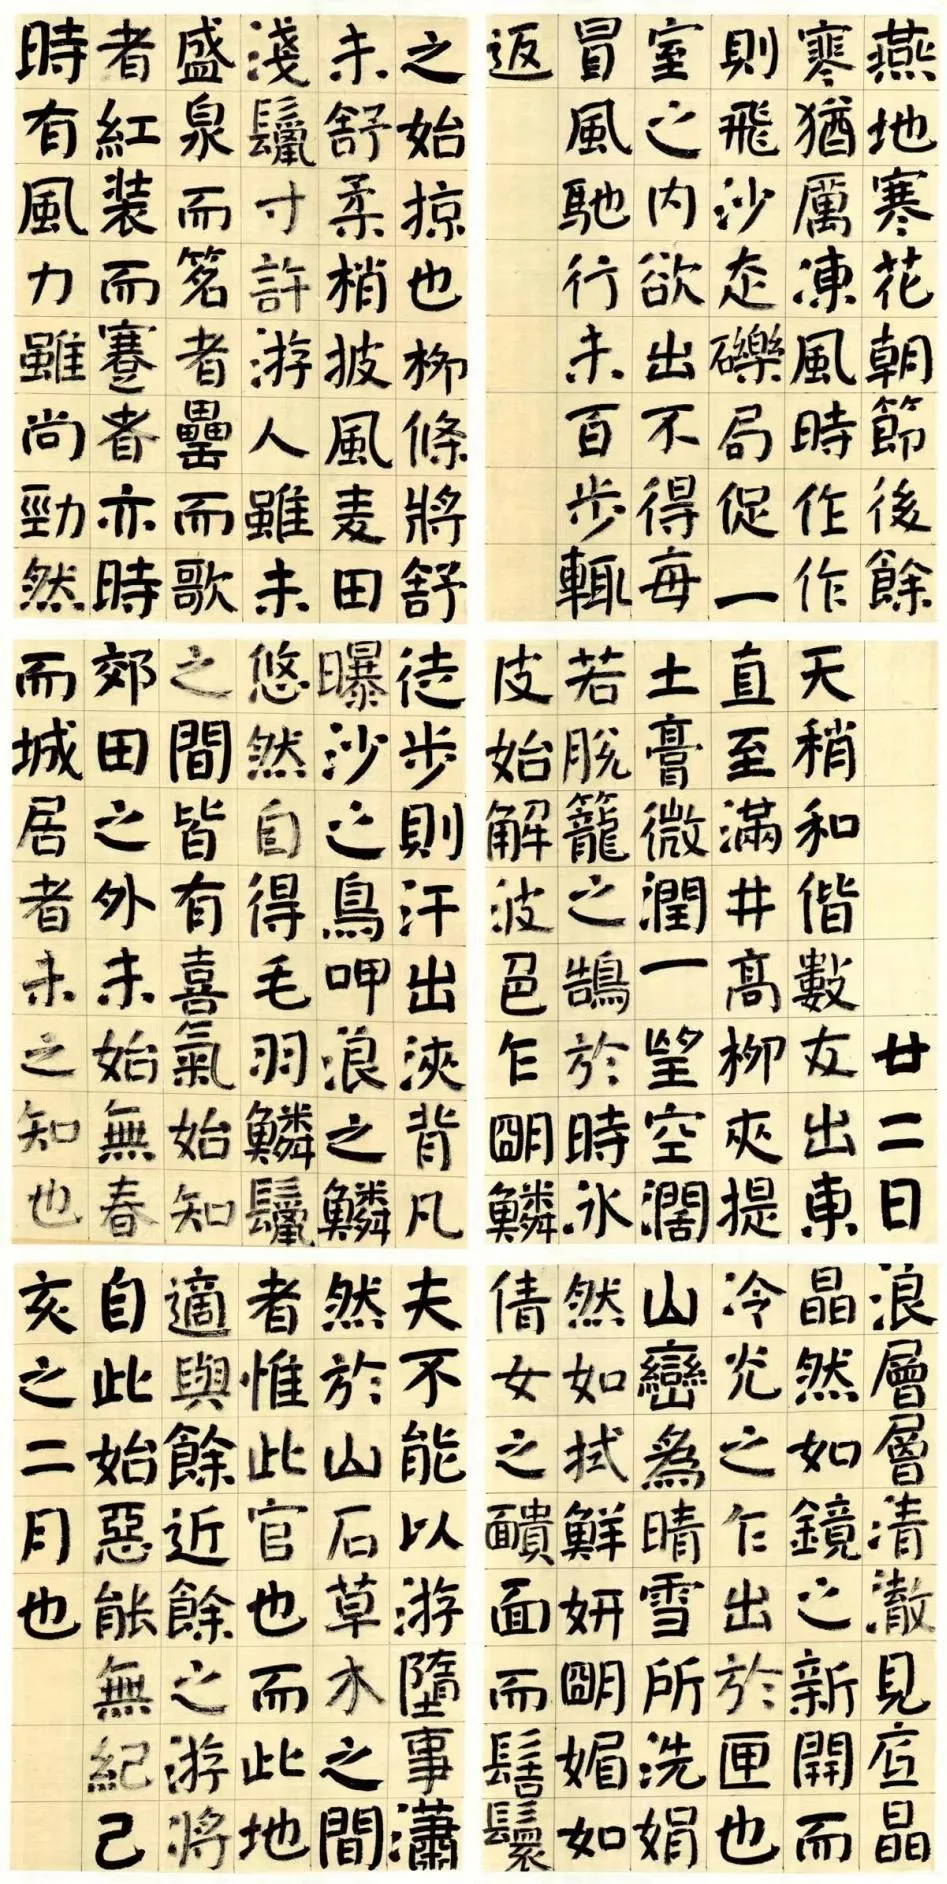 燕地寒花朝節後餘
寒猶厲凍風時作作
則飛沙走礫局促一
室之內欲出不得每
冒風馳行未百步輒
返
廿二日
天稍和偕數友出東
直至滿井高柳夾提
土膏微潤一望空闊
若脫籠之鵠於時冰
皮始解波色乍明鱗
浪層層清澈見底晶
晶然如鏡之新開而
冷光之乍出於匣也
山巒為晴雪所洗娟
然如拭鮮妍明媚如
倩女之靧面而髻鬟
之始掠也柳條將舒
未舒柔梢披風麦田
淺鬣寸許游人雖未
盛泉而茗者罍而歌
者紅装而蹇者亦時
時有風力雖尚勁然
徒步則汗出浹背凡
曝沙之鳥呷浪之鱗
悠然自得毛羽鱗鬣
之間皆有喜氣始知
郊田之外未始無春
而城居者未之知也
夫不能以游墮事瀟
然於山石草木之間
者惟此官也而此地
適與餘近餘之游將
自此始惡能無紀己
亥之二月也